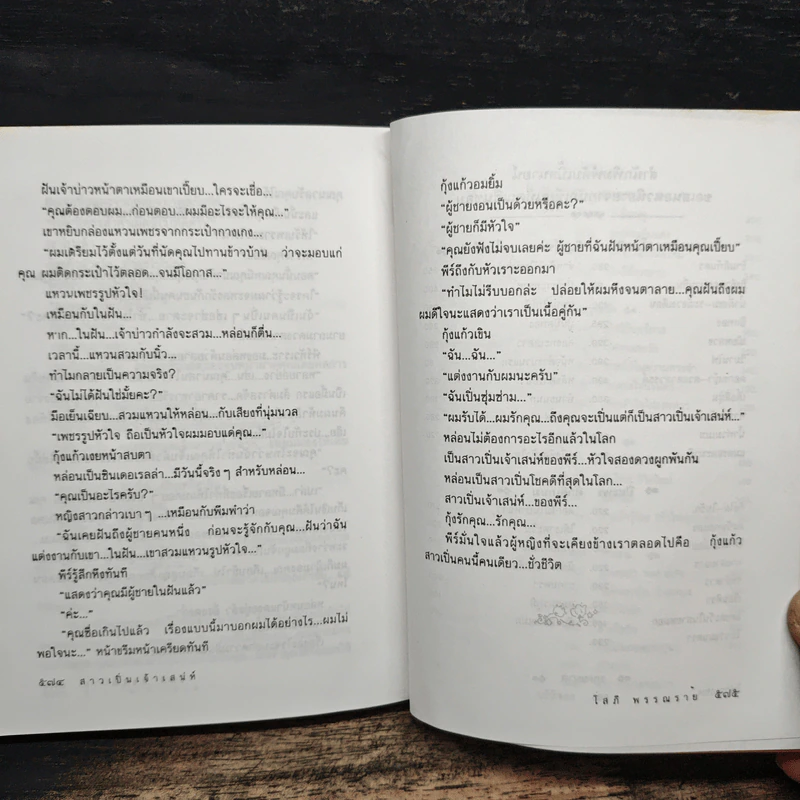 ฝันเจ้าบ่าวหน้าตาเหมือนเขาเปี๊ยบ...ใครจะเชื่อ...
"คุณต้องตอบผม...ก่อนตอบ...ผมมีอะไรให้คุณ..."
เขาหยิบกล่องแหวนเพชรจากกระเป๋ากางเกง...
"ผมเตรียมไว้ตั้งแต่วันที่นัดคุณไปทานข้าวบ้าน ว่าจะมอบแก่
คุณ ผมติดกระเป๋าไว้ตลอด...จนมีโอกาส..."
แหวนเพชรรูปหัวใจ!
เหมือนกับในฝัน...
หาก...ในฝัน...เจ้าบ่าวกำลังจะสวม...หล่อนก็ตื่น...
เวลานี้...แหวนสวมกับนิ้ว...
ทำไมกลายเป็นความจริง?
"ฉันไม่ได้ฝันใช่มั้ยคะ?"
มือเย็นเฉียบ...สวมแหวนให้หล่อน...กับเสียงที่นุ่มนวล
"เพชรรูปหัวใจ ถือเป็นหัวใจผมมอบแด่คุณ..."
กุ้งแก้วเงยหน้าสบตา
หล่อนเป็นซินเดอเรลล่า...มีวันนี้จริงๆ สำหรับหล่อน...
"คุณเป็นอะไรครับ?"
หญิงสาวกล่าวเบาๆ ...เหมือนกับพึมพำว่า
"ฉันเคยฝันถึงผู้ชายคนหนึ่ง ก่อนจะรู้จักกับคุณ...ฝันว่าฉัน
แต่งงานกับเขา...ในฝัน...เขาสวมแหวนรูปหัวใจ..."
พีร์รู้สึกหึงทันที
"แสดงว่าคุณมีผู้ชายในฝันแล้ว"
"ค่ะ..."
"คุณซื่อเกินไปแล้ว เรื่องแบบนี้มาบอกผมได้อย่างไร...ผมไม่
พอใจนะ..." หน้าขรึมหน้าเครียดทันที
๕๗๔ สาวเปิ่นเจ้าเสน่ห์
กุ้งแก้วอมยิ้ม
"ผู้ชายงอนเป็นด้วยหรือคะ?"
"ผู้ชายก็มีหัวใจ"
"คุณยังฟังไม่จบเลยค่ะ ผู้ชายที่ฉันฝันหน้าตาเหมือนคุณเปี๊ยบ"
พีร์ถึงกับหัวเราะออกมา
"ทำไมไม่รีบบอกล่ะ ปล่อยให้ผมหึงจนตาลาย...คุณฝันถึงผม
ผมดีใจนะแสดงว่าเราเป็นเนื้อคู่กัน"
กุ้งแก้วเขิน
"ฉัน...ฉัน..."
"แต่งงานกับผมนะครับ"
"ฉันเปิ่นซุ่มซ่าม..."
"ผมรับได้...ผมรักคุณ...ถึงคุณจะเปิ่นแต่ก็เป็นสาวเปิ่นเจ้าเสน่ห์..."
หล่อนไม่ต้องการอะไรอีกแล้วในโลก
เป็นสาวเปิ่นเจ้าเสน่ห์ของพีร์...หัวใจสองดวงผูกพันกัน
หล่อนเป็นสาวเปิ่นโชคดีที่สุดในโลก...
สาวเปิ่นเจ้าเสน่ห์ ...ของพีร์...
กุ้งรักคุณ...รักคุณ...
พีร์มั่นใจแล้วผู้หญิงที่จะเคียงข้างเราตลอดไปคือ กุ้งแก้ว
สาวเปิ่นคนนี้คนเดียว...ชั่วชีวิต
โสภี พรรณราย ๕๗๕